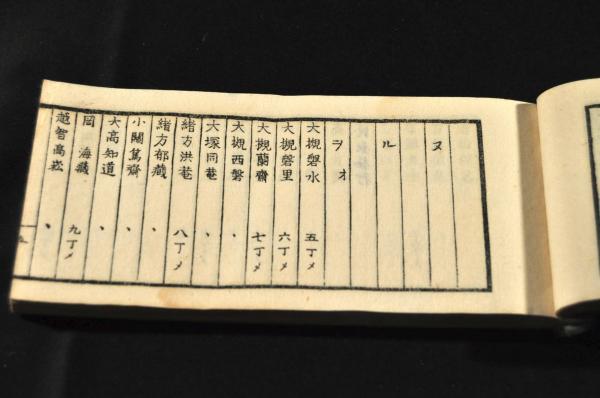 ヌ
ル
ヲオ
大槻磐水 五丁メ
大槻磐里 六丁メ
大槻蘭齋 七丁メ
大槻西磐 、
大塚同菴 、
緒方洪菴 八丁メ
緒方郁藏 、
小關篤齋 、
大高知道 、
岡海藏 九丁メ
越智高崧 、